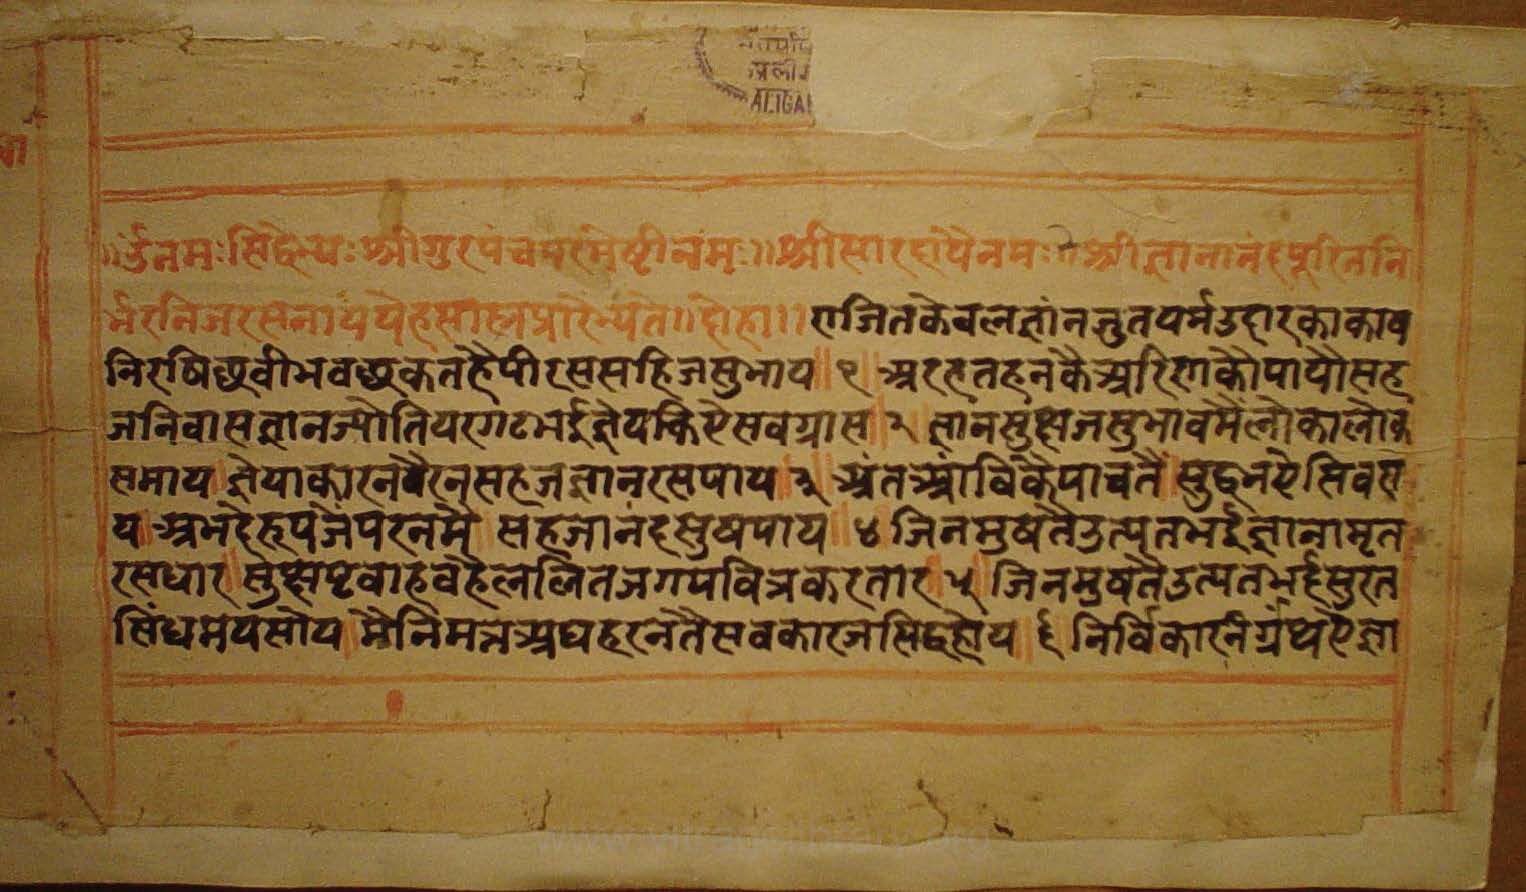 प्रली
ALIGA
॥ र्उनमः सिद्धेभ्यः श्रीगुरपंचपरमेष्टीनमः ॥ श्रीसारदायैनमः ॥ श्रीज्ञानानंदपूरितनि
र्भरनिजरसेनाय
॥ दोहा ॥ राजितकेवलज्ञांनजुतपर्मउदारककाव
निरषिछवीभवछकतहैपीरससहिजसुभाय ॥ १ ॥ अरहतहनकैअरिहाकौपायौसह
जनिवासज्ञानज्योतिपरगटभईज्ञेयकिएसवग्रास २ ज्ञानसुछजसुभावमैलोकालोक
समाय ज्ञेयाकारनवैरनसहजज्ञानरसपाय ३ अंतआंविकैपाचतै सुद्धनएसिवरा
य अभदैरूपजैपरनमै सहजानंदसुषपाय ॥ ४ जिनमुषतैउत्पतभईज्ञानामृत
रसधार
वहैललितजगपवित्रकरतार ५ जिनमुषतैउत्पतभईसुरत
सिंधमयसोय मैनिमनअघहरनतैसवकारजसिद्धहोय ॥ ६ निर्विकारनिर्ग्रंथएज्ञा